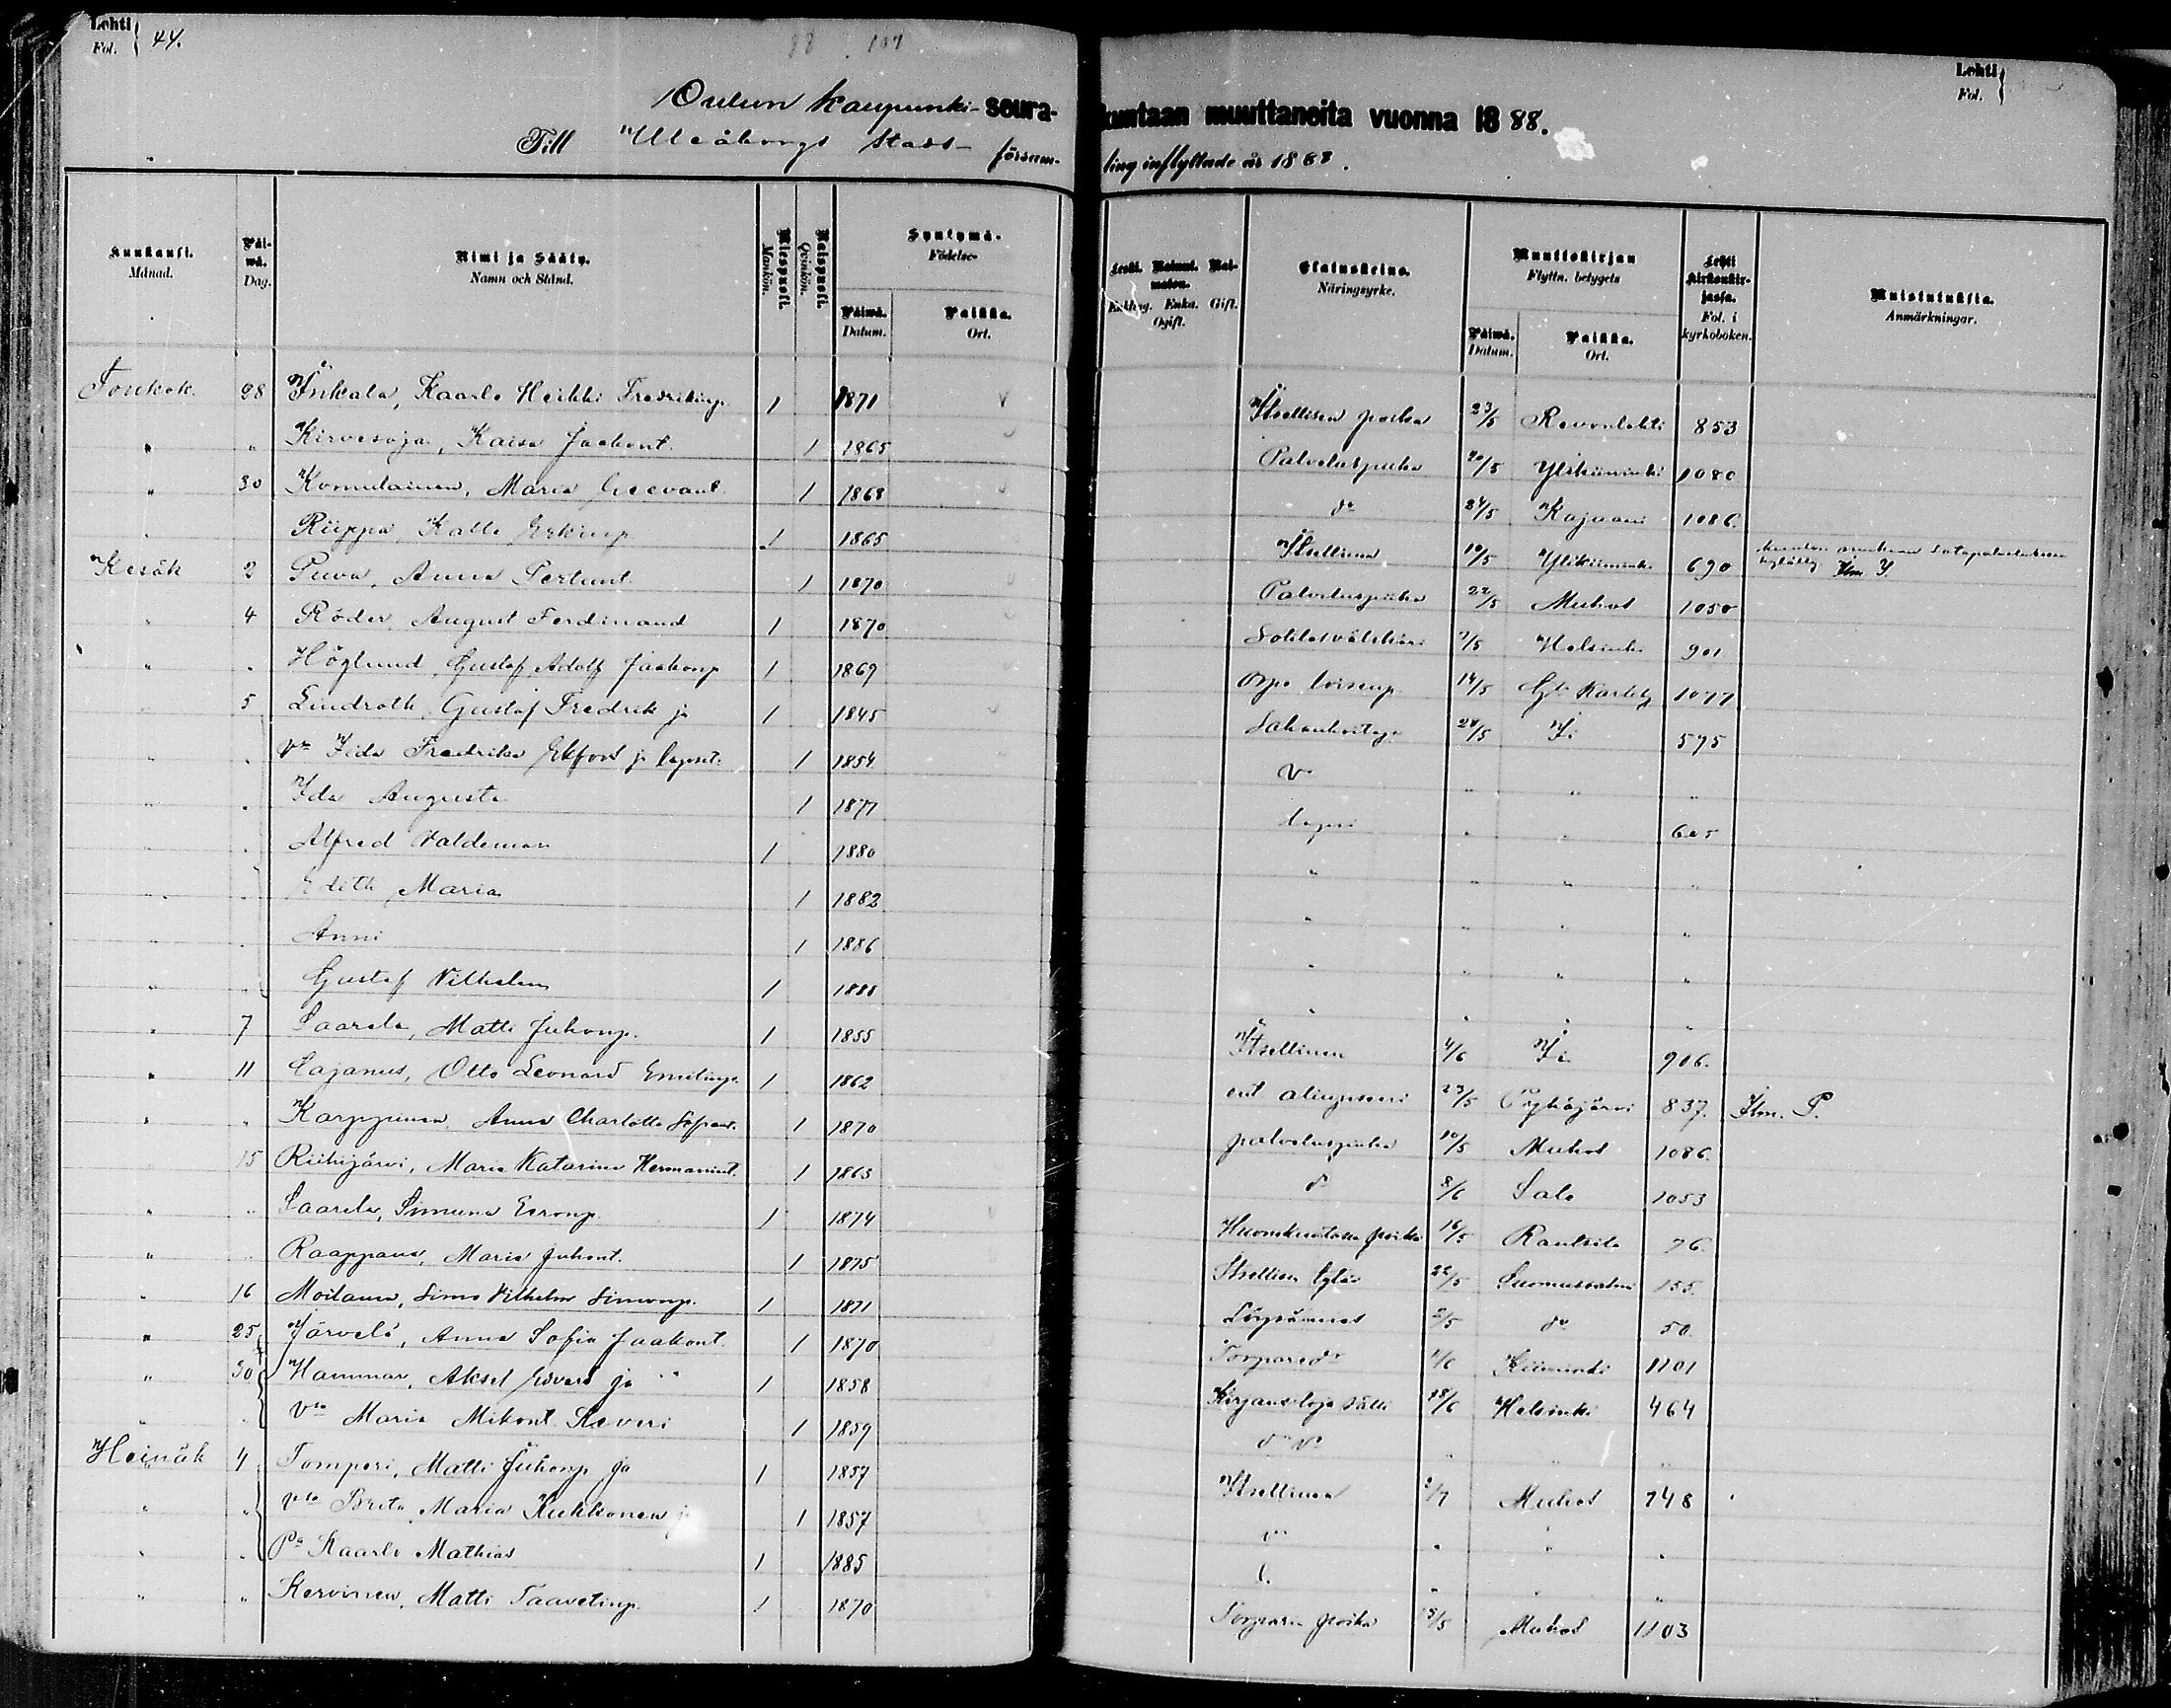 Lehti
Fol. 44.
Lehti
Fol.
Oulun kaupunki-seurakuntaan muuttaneita vuonna 1888.
Till Uleåborgs Stads- församling inflyttade år 1888.
Kuukausi. Månad. Päiwä. Dag. Nimi ja Sääty. Namn och Stånd. Miespuoli. Mankön. Naispuoli. Qvinkön. Syntymä- Födelse- Päiwä. Datum. Paikka. Ort. Leski. Enkling. Enka. Gift. Ogift. Elatuskeino. Näringsyrke. Muuttokirjan Flyttn. betygets Päiwä. Datum. Paikka. Ort. Lehti kirkonkirjassa. Fol. i kyrkoboken. Muistutuksia. Anmärkningar.
Toukok. 28 Inkala, Kaarlo Heikki Fredrikinp. 1 1871 Itsellisen poika 23/5 Revonlahti 853
" " Kirvesoja, Kaisa Jaakont. 1 1865 Palveluspiika 20/5 Ylikiiminki 1080
" 30 Komulainen, Maria 1 1868 do 24/5 Kajaani 1086.
Riippa Kalle Erkinp. 1 1865 Itsellinen 19/5 Ylikiiminki 690
Kesäk 2 Puva, Anna Pertunt. 1 1870 Palveluspiika 22/5 Muhos 1050
" 4 Röder, August Ferdinand 1 1870 7/5 Helsinki 901
" " Höglund, Gustaf Adolf Jaakonp 1 1869 14/5 Gl Karleby 1077
5 Lindroth, Gustaf Fredrik ja 1 1845 28/5 Ii 595
" " Vo Iida Fredrika Ekfors ja lapset: 1 1854 Vo " " "
" " Ida Augusta 1 1877 lapsi " " 605
" " Alfred Valdemar 1 1880 " " "
" " Edith Maria 1 1882 " " " "
" " Anni 1 1886 " " " "
" " Gustaf Vilhelm 1 1888 " " " "
" 7 Saarela, Matti Juhonp. 1 1855 Itsellinen 4/6 Ii 906.
" 11 Cajanus, Otto Leonard Emilinp. 1 1862 ent aliupseeri 29/5 Pyhäjärvi 837. Ilm. P.
" " Karppinen, Anna Charlotta 1 1870 palveluspiika 10/5 Muhos 1086.
15 Riihijärvi, Maria Katarina Hermannint. 1 1863 do 8/6 Salo 1053
" " Saarela, Simuna Eeronp. 1 1874 16/5 Rantsila 76.
" " Raappana, Maria Juhont. 1 1875 Itsellisen tytär 22/5 Suomussalmi 155.
" 16 Moilanen, Simo Vilhelm Simonp. 1 1871 2/5 do 50.
" 25 Järvelä, Anna Sofia Jaakont. 1 1870 1/6 Kiiminki 1101
" 30 Hammar, Aksel Edvard ja 1 1858 Kirjansitoja sälli 18/6 Helsinki 464
" " Vo Maria Mikont. Keveri 1 1859 do Vo " "
Heinäk 4 Tomperi, Matti Juhonp. ja 1 1857 Itsellinen 2/7 Muhos 748
" " Vo Brita Maria Kukkonen ja 1 1857 vo " " "
" " Po Kaarlo Mathias 1 1885 l. " " "
" " Kervinen, Matti Taavetinp. 1 1870 Torparin poika 15/5 Muhos 1103